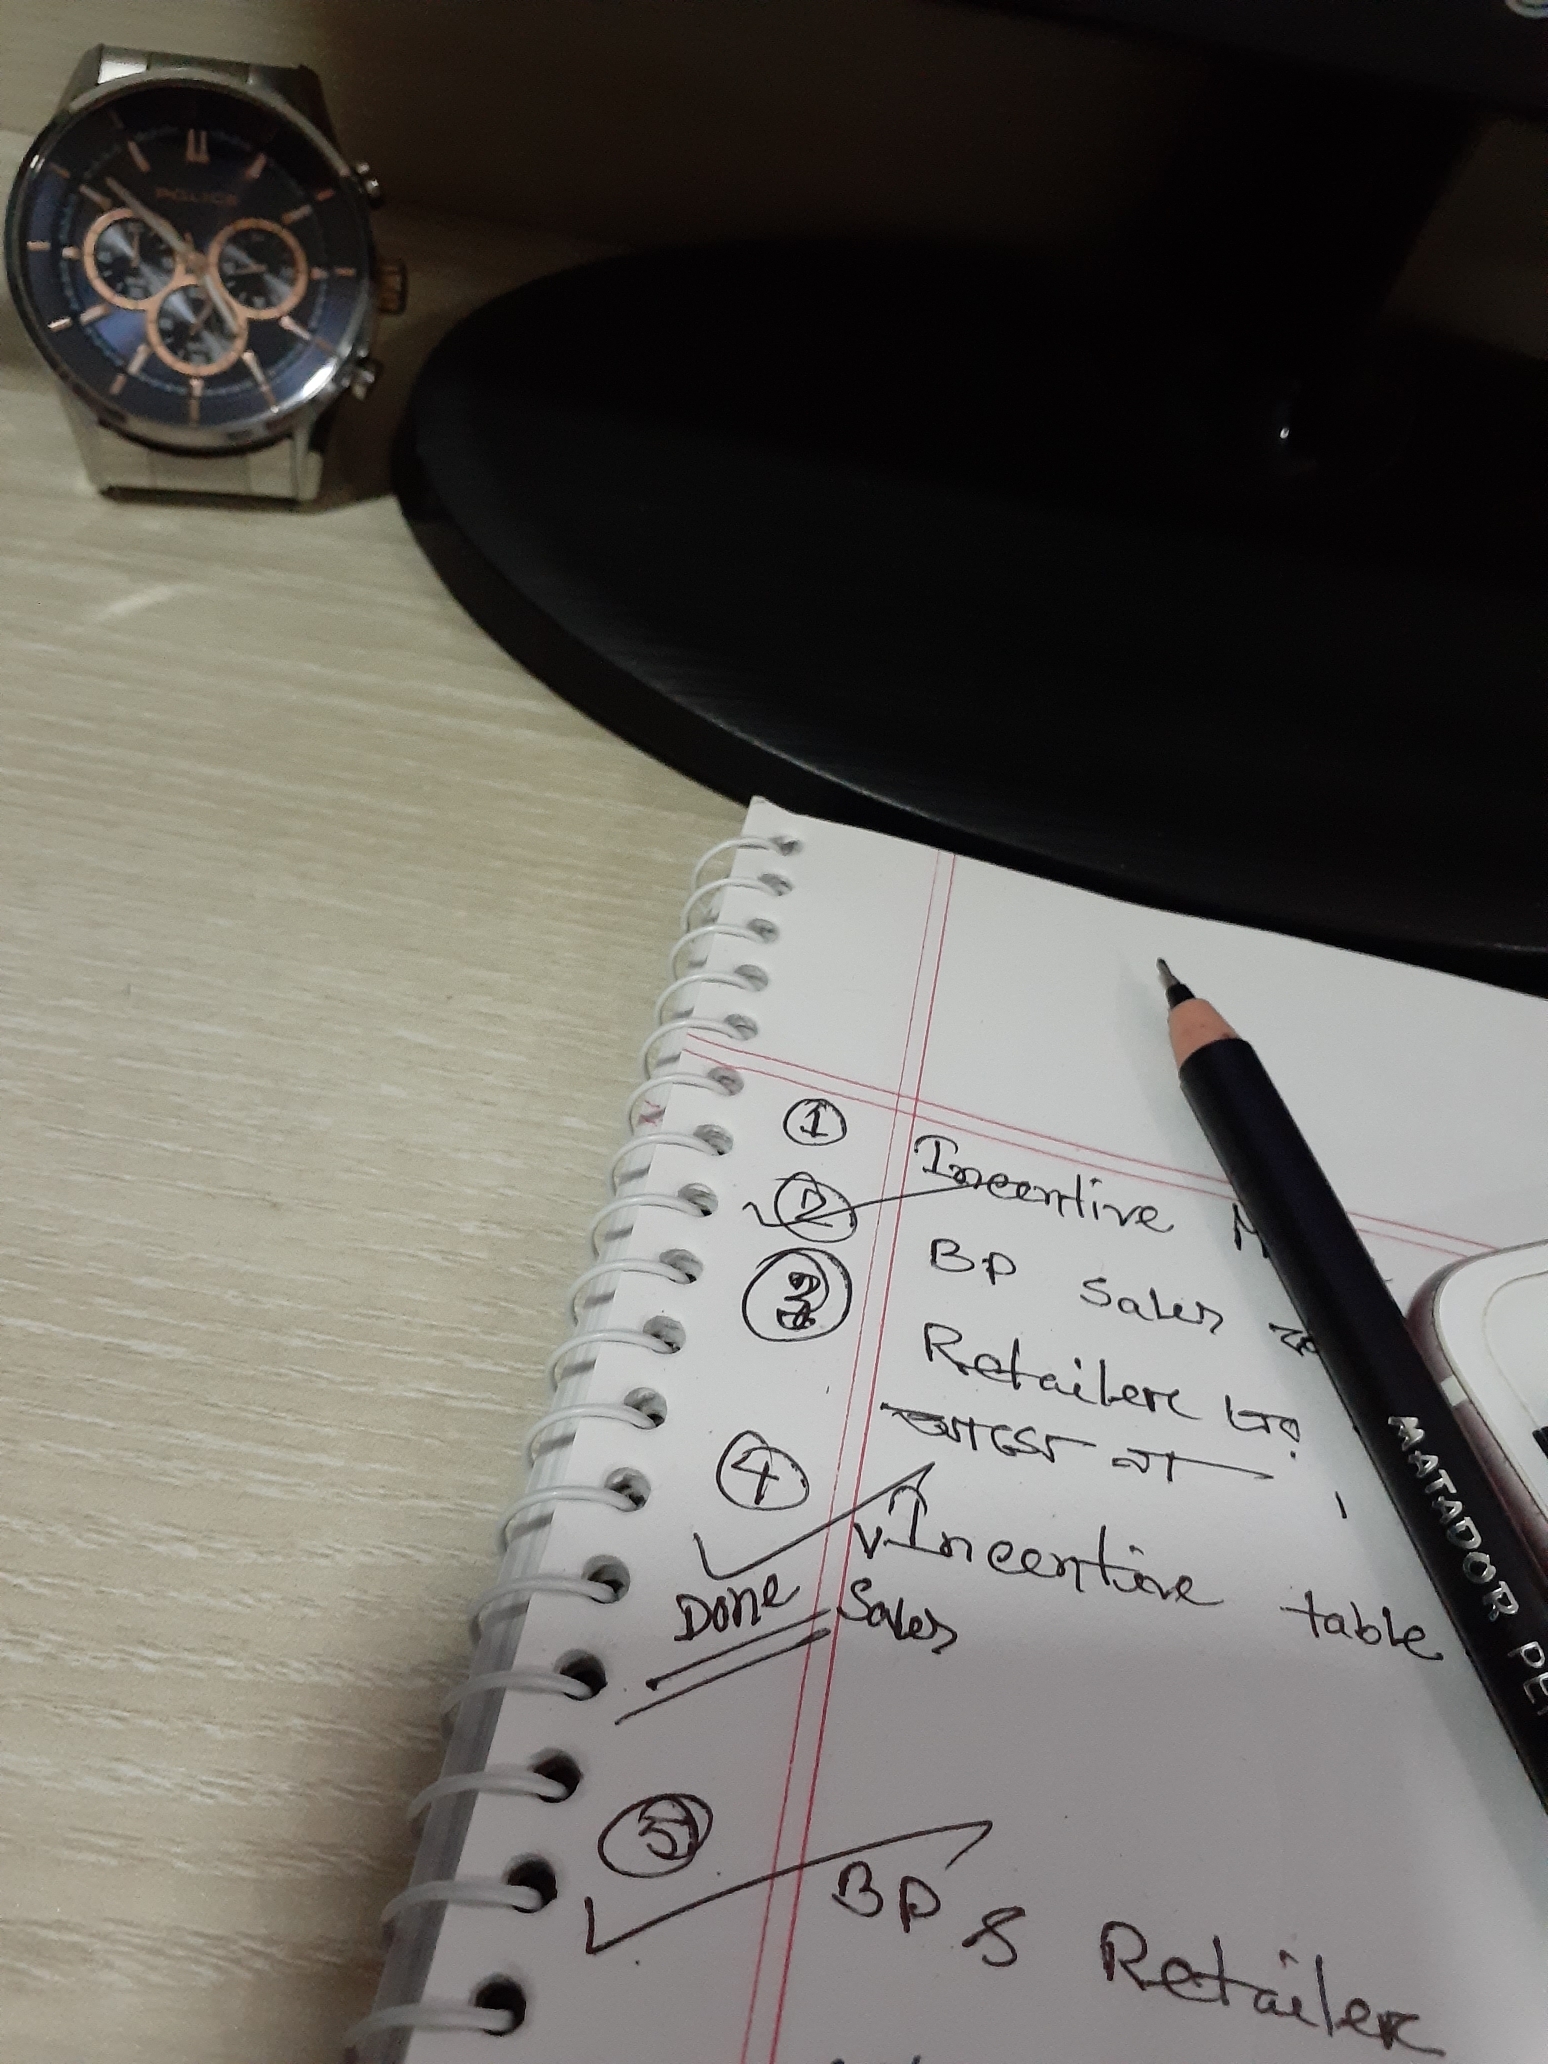 POLICE
① Incentive
② BP Sales
③ Retailer
আসে না
④ Incentive table
Done Sales
⑤ BP & Retailer
MATADOR